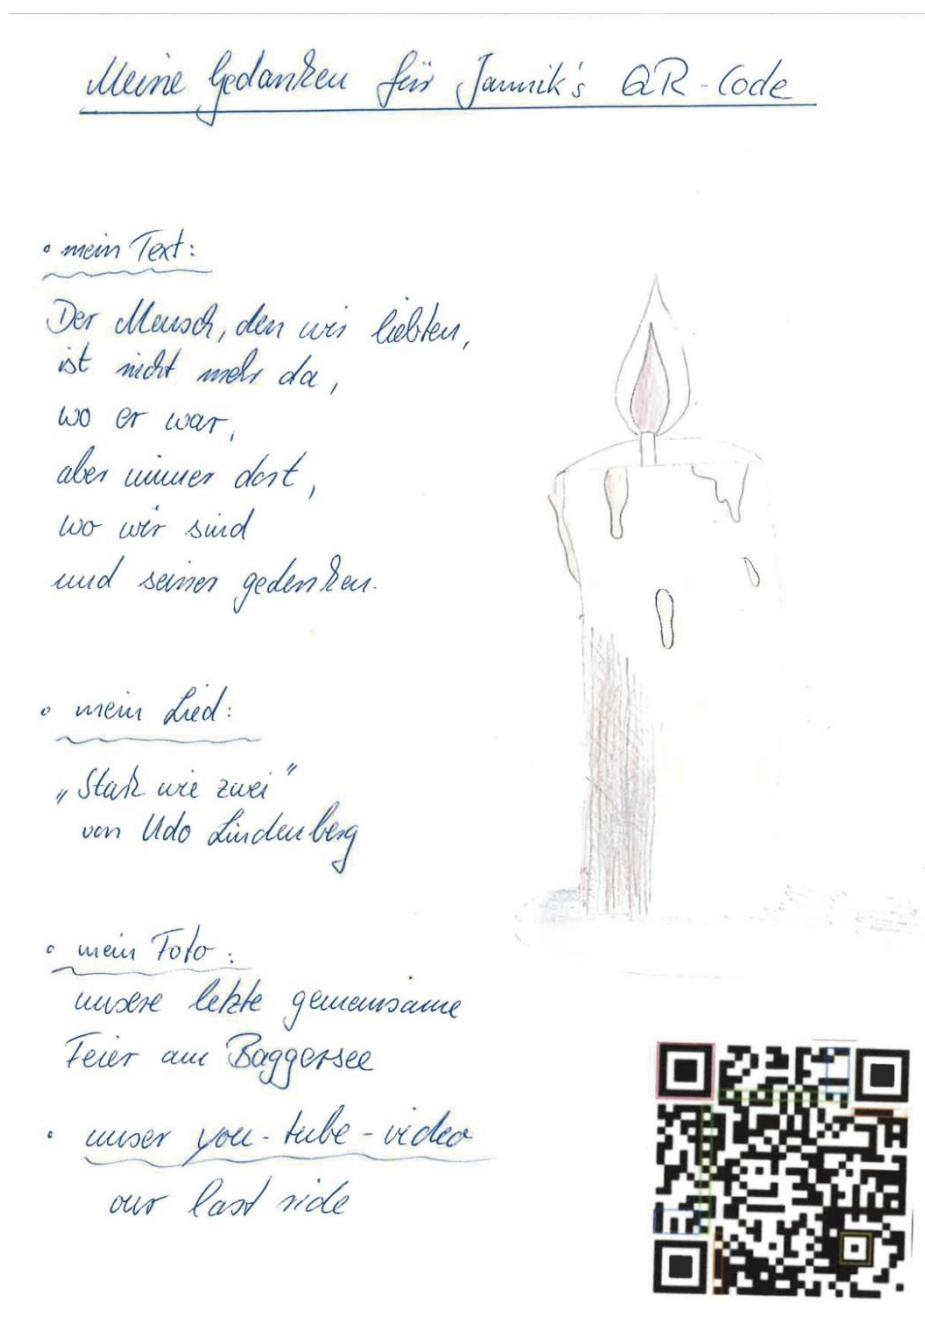 Meine Gedanken für Jannik's QR-Code
• mein Text:
Der Mensch, den wir liebten,
ist nicht mehr da,
wo er war,
aber immer dort,
wo wir sind
und seiner gedenken.
• mein Lied:
„Stark wie zwei"
von Udo Lindenberg
• mein Foto:
unsere letzte gemeinsame
Feier am Baggersee
• unser you-tube-video
our last ride